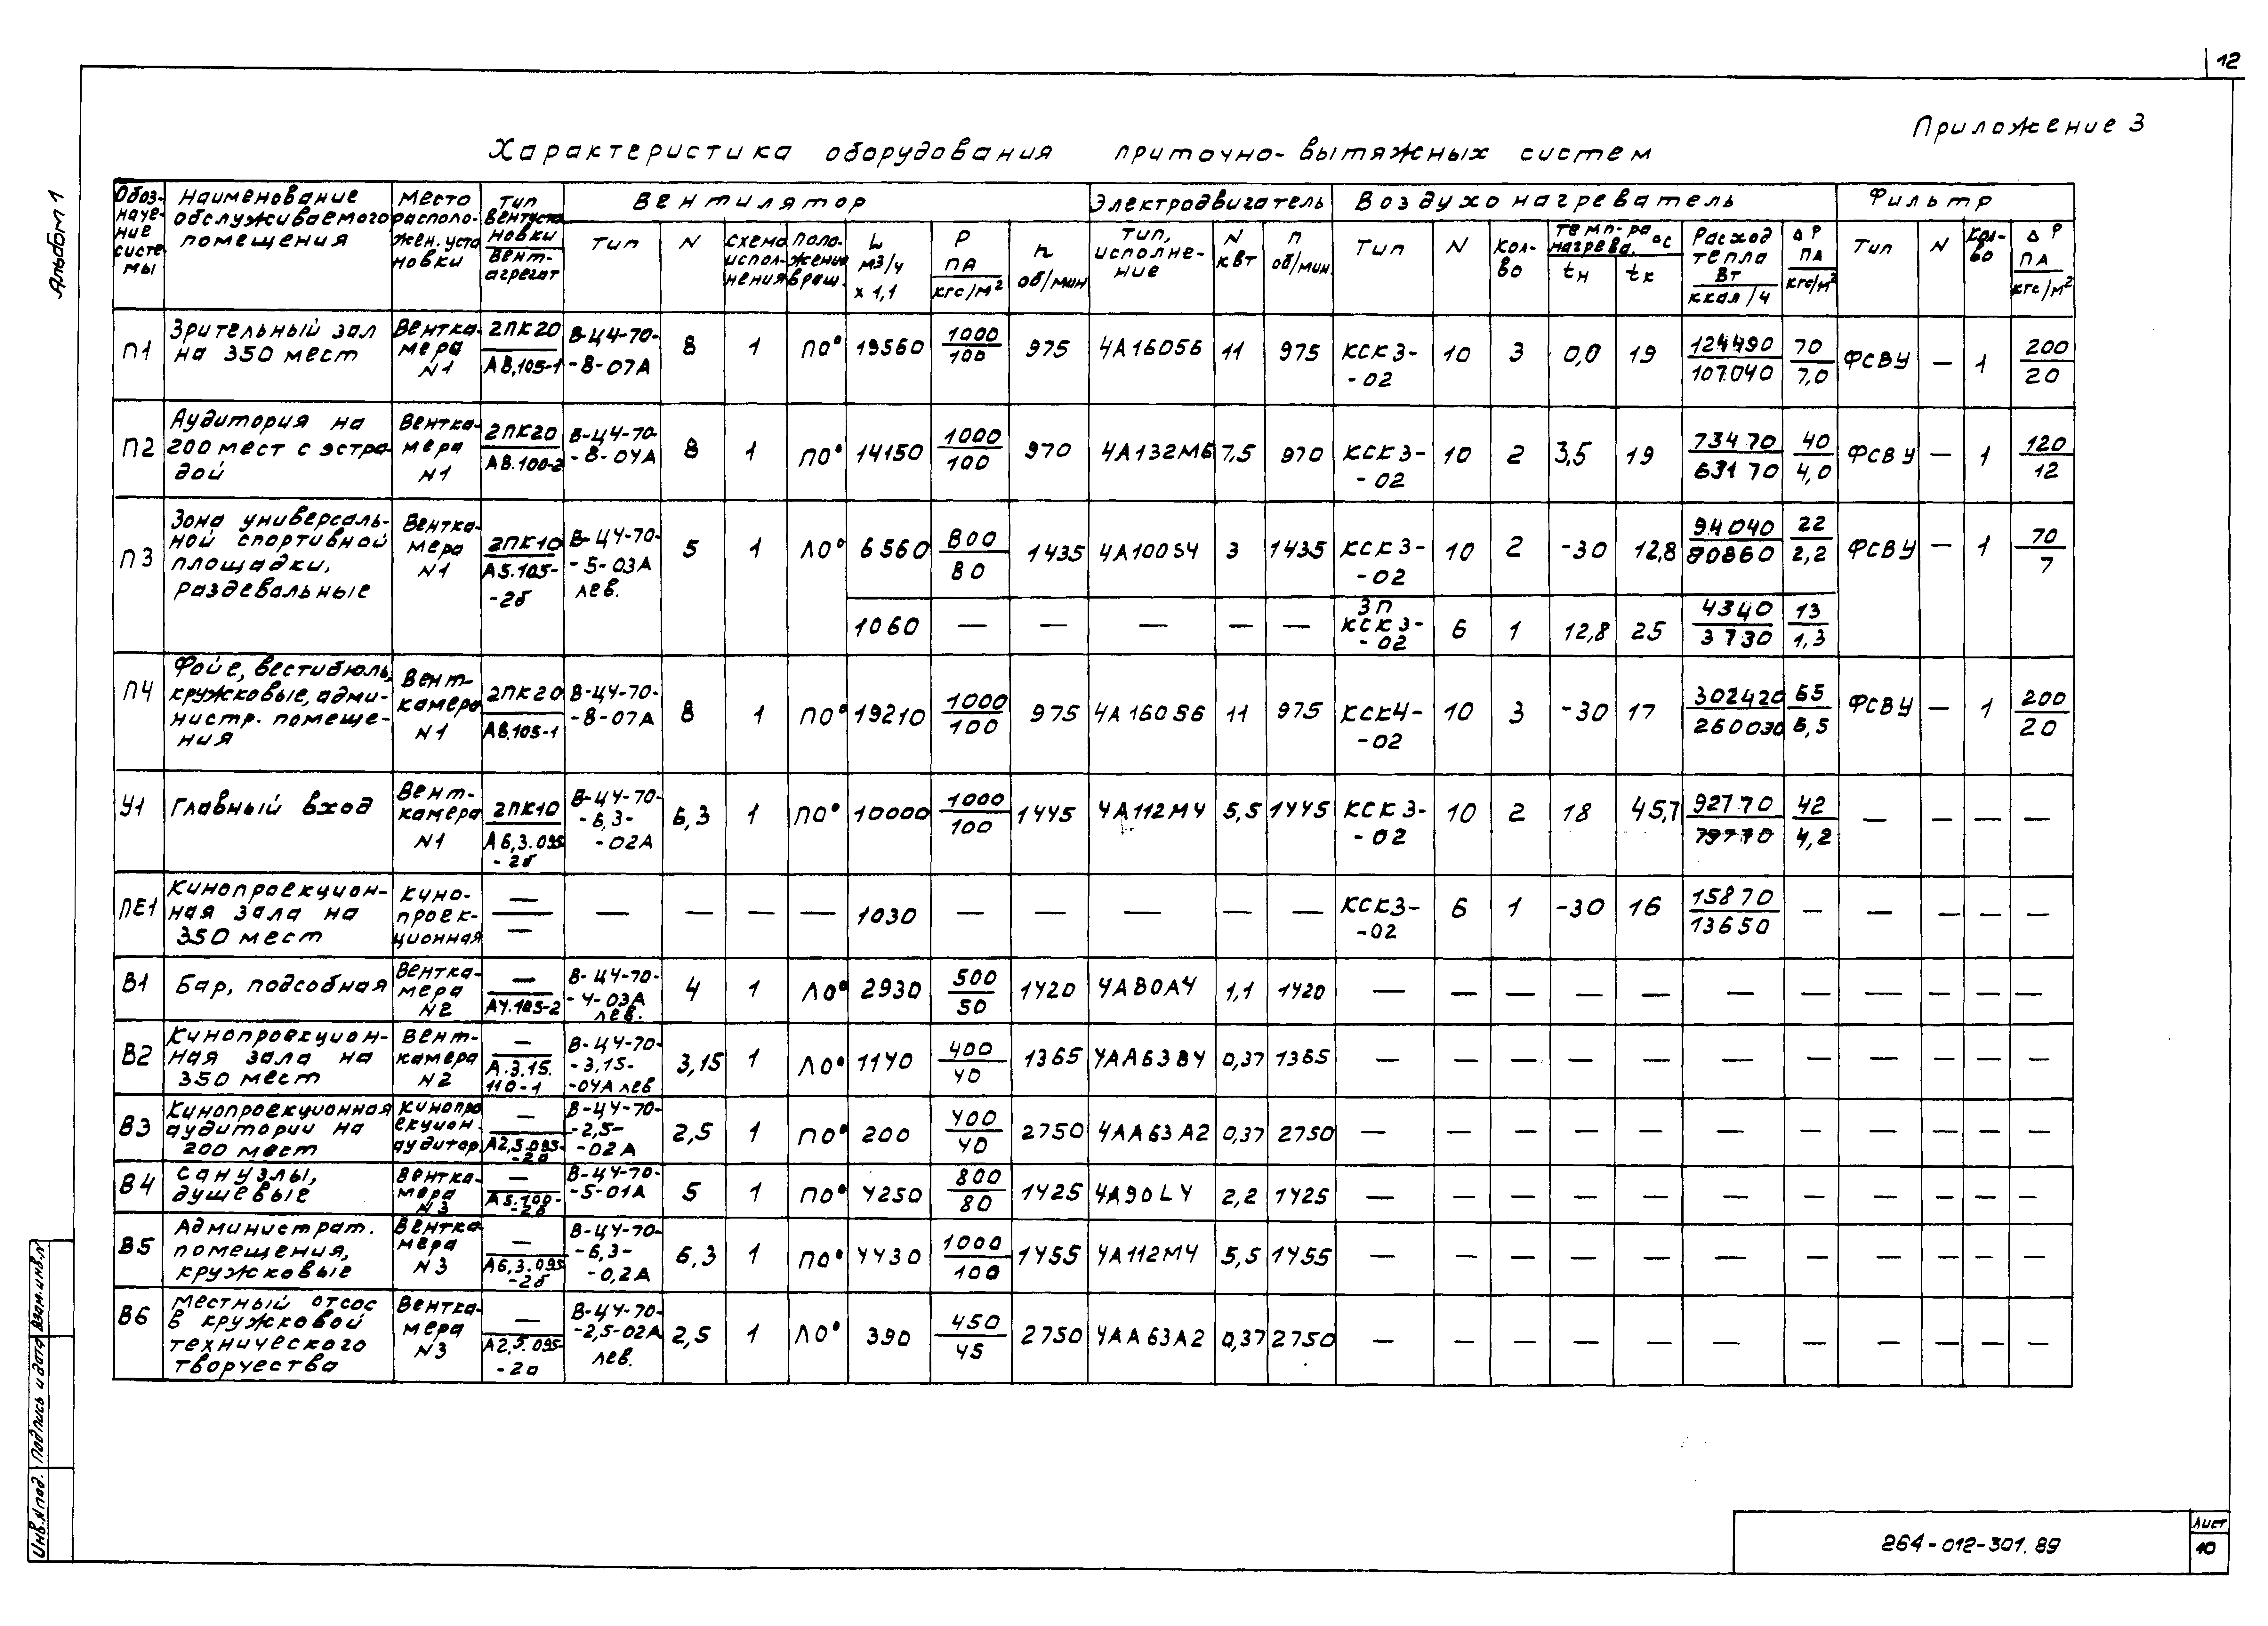 12
Приложение 3
Альбом 1
Характеристика оборудования приточно-вытяжных систем
Обоз-наче-ние систе-мы | Наименование обслуживаемого помещения | Место располо-жен. уста новки | Тип вентуста новки / Вент-агрегат | Вентилятор | Электродвигатель | Воздухонагреватель | Фильтр
Тип | N | схема испол-нения | Поло-жение вращ. | L м3/ч х 1,1 | Р ПА / кгс/м² | n об/мин | Тип, исполне-ние | N квт | п об/мин. | Тип | N | Кол-во | темп-ра нагрева, °С tн | tк | Расход тепла Вт / ккал/ч | ΔР ПА / кгс/м² | Тип | N | Кол-во | ΔР ПА / кгс/м²
П1 | Зрительный зал на 350 мест | Вентка-мера N1 | 2ПК20 / А8,105-1 | В-Ц4-70--8-07А | 8 | 1 | П0° | 19560 | 1000/100 | 975 | 4А160S6 | 11 | 975 | КСК3--02 | 10 | 3 | 0,0 | 19 | 124490/107040 | 70/7,0 | ФСВУ | — | 1 | 200/20
П2 | Аудитория на 200 мест с эстра-дой | Вентка-мера N1 | 2ПК20 / А8.100-2 | В-Ц4-70--8-04А | 8 | 1 | П0° | 14150 | 1000/100 | 970 | 4А132М6 | 7,5 | 970 | КСК3--02 | 10 | 2 | 3,5 | 19 | 73470/63170 | 40/4,0 | ФСВУ | — | 1 | 120/12
П3 | Зона универсаль-ной спортивной площадки, раздевальные | Вентка-мера N1 | 2ПК10 / А5.105--2б | В-Ц4-70--5-03А лев. | 5 | 1 | Л0° | 6560 | 800/80 | 1435 | 4А100S4 | 3 | 1435 | КСК3--02 | 10 | 2 | -30 | 12,8 | 94040/80860 | 22/2,2 | ФСВУ | — | 1 | 70/7
1060 | — | — | — | — | — | 3П КСК3--02 | 6 | 1 | 12,8 | 25 | 4340/3730 | 13/1,3
П4 | Фойе, вестибюль, кружковые, адми-нистр. помеще-ния | Вент-камера N1 | 2ПК20 / А8.105-1 | В-Ц4-70--8-07А | 8 | 1 | П0° | 19210 | 1000/100 | 975 | 4А160S6 | 11 | 975 | КСК4--02 | 10 | 3 | -30 | 17 | 302420/260030 | 65/6,5 | ФСВУ | — | 1 | 200/20
У1 | Главный вход | Вент-камера N1 | 2ПК10 / А6,3.095-2б | В-Ц4-70--6,3--02А | 6,3 | 1 | П0° | 10000 | 1000/100 | 1445 | 4А112М4 | 5,5 | 1445 | КСК3--02 | 10 | 2 | 18 | 45,7 | 92770/79770 | 42/4,2 | — | — | — | —
ПЕ1 | Кинопроекцион-ная зала на 350 мест | Кино-проек-ционная | — / — | — | — | — | — | 1030 | — | — | — | — | — | КСК3--02 | 6 | 1 | -30 | 16 | 15870/13650 | — | — | — | — | —
В1 | Бар, подсобная | Вентка-мера N2 | — / А4.105-2 | В-Ц4-70--4-03А лев. | 4 | 1 | Л0° | 2930 | 500/50 | 1420 | 4А80А4 | 1,1 | 1420 | — | — | — | — | — | — | — | — | — | — | —
В2 | Кинопроекцион-ная зала на 350 мест | Вент-камера N2 | — / А.3.15.110-1 | В-Ц4-70--3,15--04А лев | 3,15 | 1 | Л0° | 1140 | 400/40 | 1365 | 4АА63В4 | 0,37 | 1365 | — | — | — | — | — | — | — | — | — | — | —
В3 | Кинопроекционная аудитории на 200 мест | Кинопро екцион. аудитор. | — / А2,5.095--2а | В-Ц4-70--2,5--02А | 2,5 | 1 | П0° | 200 | 400/40 | 2750 | 4АА63А2 | 0,37 | 2750 | — | — | — | — | — | — | — | — | — | — | —
В4 | Санузлы, душевые | Вентка-мера N3 | — / А5.100--2б | В-Ц4-70--5-01А | 5 | 1 | П0° | 4250 | 800/80 | 1425 | 4А90L4 | 2,2 | 1425 | — | — | — | — | — | — | — | — | — | — | —
В5 | Администрат. помещения, кружковые | Вентка-мера N3 | — / А6,3.095-2б | В-Ц4-70--6,3--0,2А | 6,3 | 1 | П0° | 4430 | 1000/100 | 1455 | 4А112М4 | 5,5 | 1455 | — | — | — | — | — | — | — | — | — | — | —
В6 | Местный отсос в кружковой технического творчества | Вентка-мера N3 | — / А2,5.095--2а | В-Ц4-70--2,5-02А лев. | 2,5 | 1 | Л0° | 390 | 450/45 | 2750 | 4АА63А2 | 0,37 | 2750 | — | — | — | — | — | — | — | — | — | — | —
Инв.N под. Подпись и дата Взам.инв.N
264-012-301.89
Лист
10